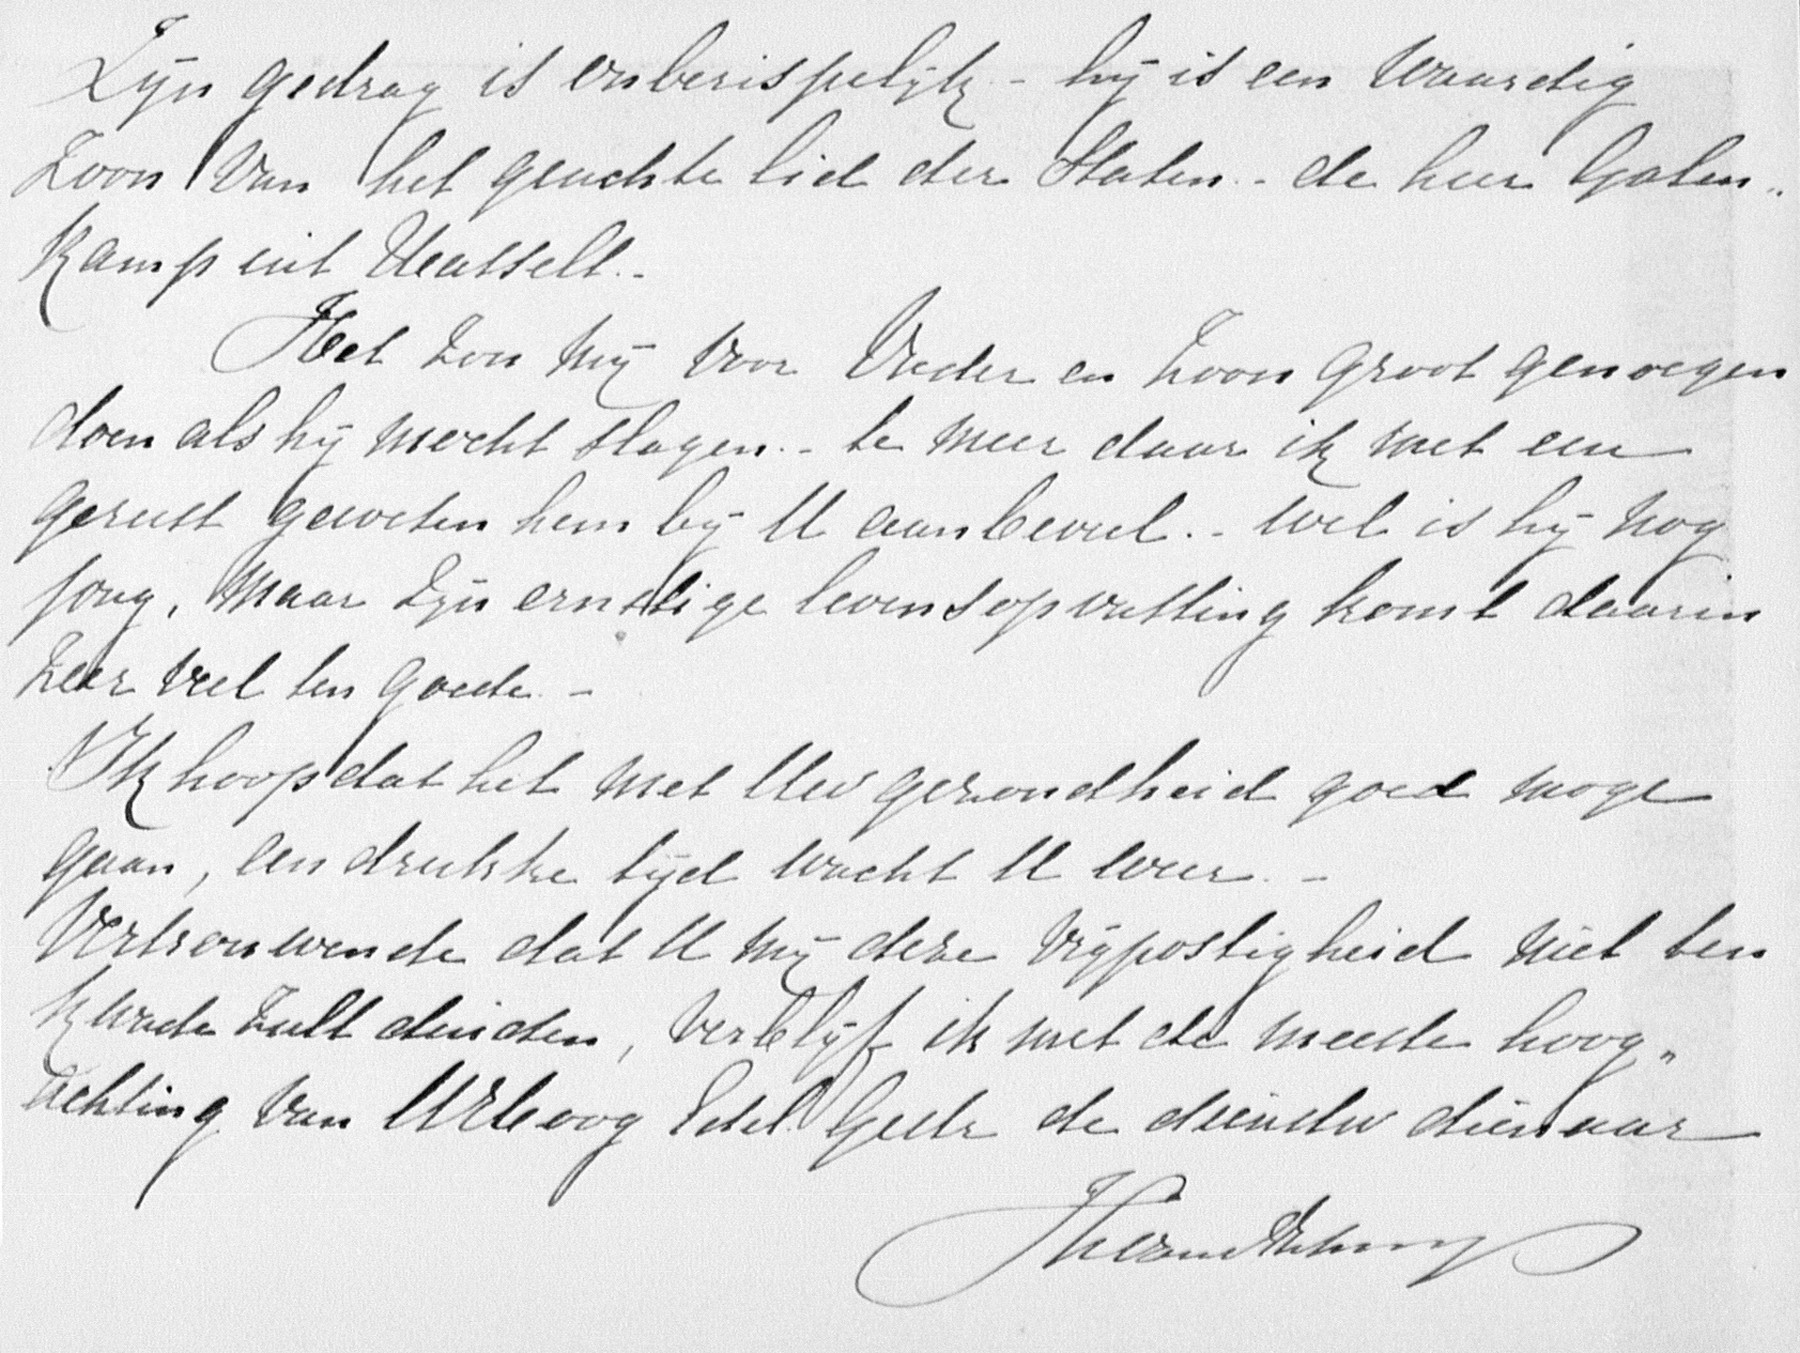 Zijn gedrag is onberispelijk - hij is een waardig
zoon van het geachte lid der Staten - de heer Galen„
kamp uit Hasselt. -
Het zou mij voor Vader en zoon groot genoegen
doen als hij mocht slagen. - te meer daar ik met een
gerust geweten hem bij U aanbeveel. - wel is hij nog
jong, maar zijn ernstige levensopvatting komt daarin
zeer veel ten goede. -
Ik hoop dat het met Uw gezondheid goed moge
gaan, een drukke tijd wacht U weer. -
Vertrouwende dat U mij deze vrijpostigheid niet ten
kwade zult duiden, verblijf ik met de meeste hoog„
achting van UHoog Edel Gestr de dienstw dienaar